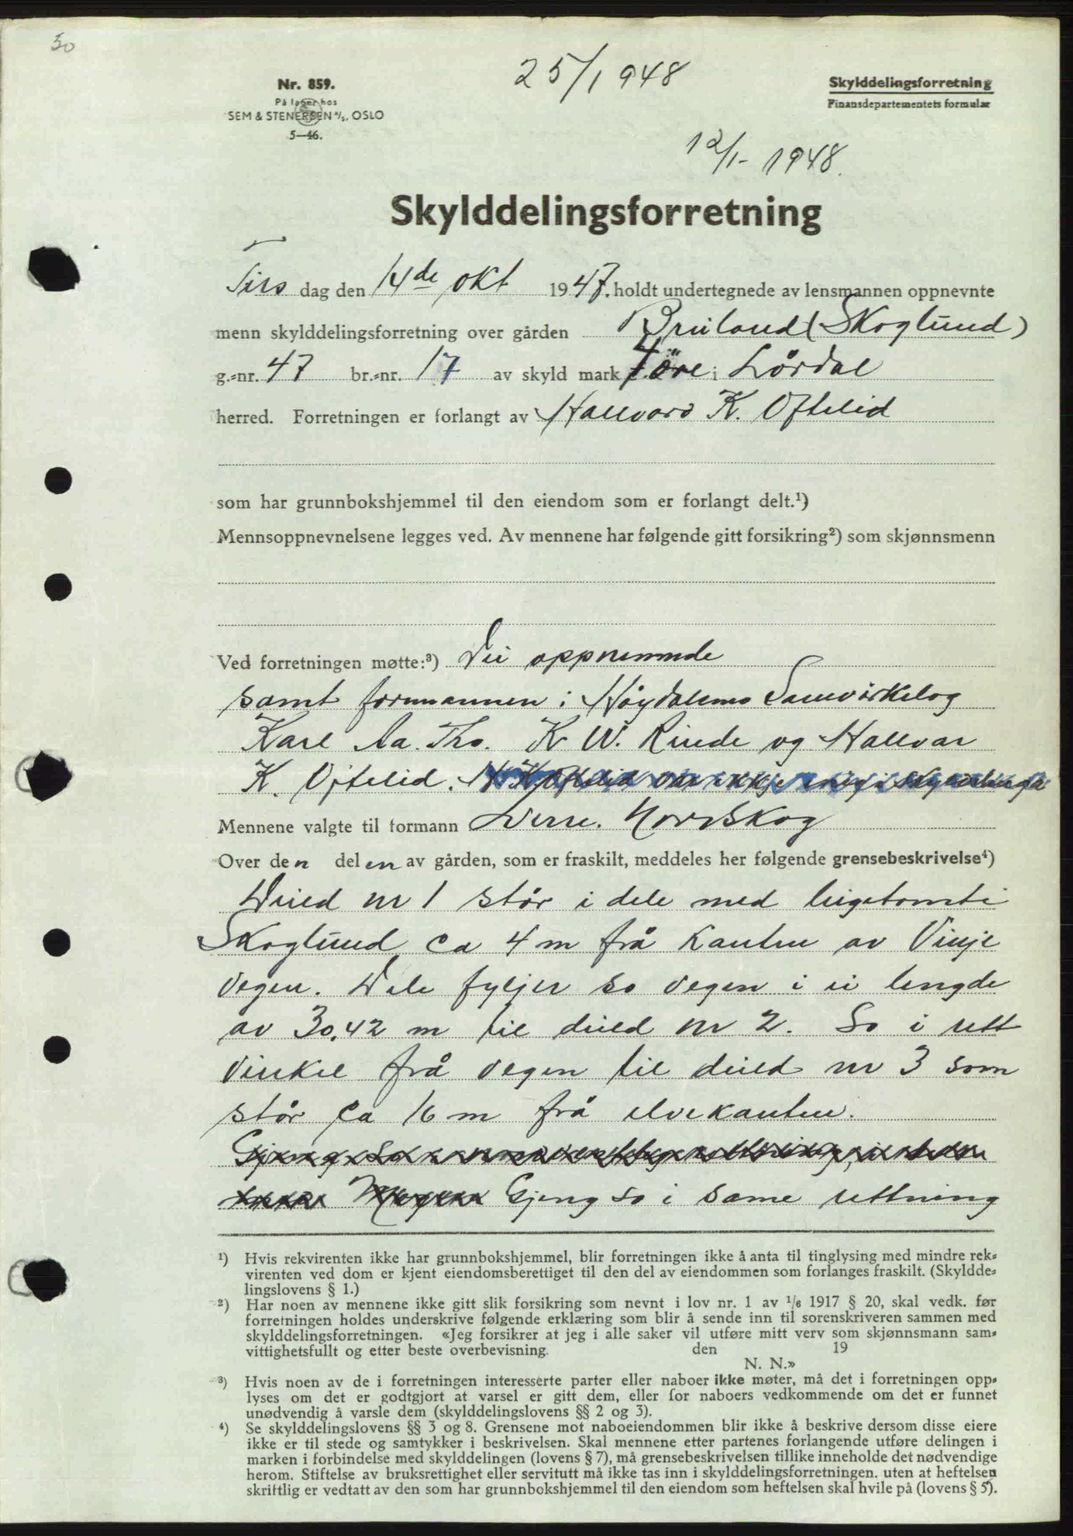 30
25/1 948
Nr. 859.
På lager hos
SEM & STENERSEN A/S, OSLO
5—46.
Skylddelingsforretning
Finansdepartementets formular
12/1- 1948.
Skylddelingsforretning
Tirs dag den 14de okt 1947. holdt undertegnede av lensmannen oppnevnte
menn skylddelingsforretning over gården Bruland (Skoglund)
g.-nr. 47 br.-nr. 17 av skyld mark 4 øre i Lårdal
herred. Forretningen er forlangt av Hallvard K. Oftelid
som har grunnbokshjemmel til den eiendom som er forlangt delt.¹)
Mennsoppnevnelsene legges ved. Av mennene har følgende gitt forsikring²) som skjønnsmenn
Ved forretningen møtte:³) Dei oppnemnde
samt formannen i Høydalsmo Samvirkelag
Karl Aa. Tho. K. W. Rinde og Hallvar
K. Oftelid.
Mennene valgte til formann Sverre. Nordskog
Over den delen av gården, som er fraskilt, meddeles her følgende grensebeskrivelse⁴)
Deild nr 1 står i dele med bygetomti
Skoglund ca 4 m frå kanten av Vinje
vegen. Dele fylgjer so vegen i ei lengde
av 30,42 m til deild nr 2. So i rett
vinkel frå vegen til deild nr 3 som
står ca 16 m frå elvekanten.
Gjeng so i same rettning
¹) Hvis rekvirenten ikke har grunnbokshjemmel, blir forretningen ikke å anta til tinglysing med mindre rek-
virenten ved dom er kjent eiendomsberettiget til den del av eiendommen som forlanges fraskilt. (Skyldde-
lingslovens § 1.)
²) Har noen av mennene ikke gitt slik forsikring som nevnt i lov nr. 1 av 1/6 1917 § 20, skal vedk. før
forretningen holdes underskrive følgende erklæring som blir å sende inn til sorenskriveren sammen med
skylddelingsforretningen. «Jeg forsikrer at jeg i alle saker vil utføre mitt verv som skjønnsmann sam-
vittighetsfullt og etter beste overbevisning. den 19
N. N.»
³) Hvis noen av de i forretningen interesserte parter eller naboer ikke møter, må det i forretningen opp-
lyses om det er godtgjort at varsel er gitt dem, eller for naboers vedkommende om det er funnet
unødvendig å varsle dem (skylddelingslovens §§ 2 og 3).
⁴) Se skylddelingslovens §§ 3 og 8. Grensene mot naboeiendommen blir ikke å beskrive dersom disse eiere
ikke er til stede og samtykker i beskrivelsen. Skal mennene etter partenes forlangende utføre delingen i
marken i forbindelse med skylddelingen (lovens § 7), må grensebeskrivelsen tillike inneholde det nødvendige
herom. Stiftelse av bruksrettighet eller servitutt må ikke tas inn i skylddelingsforretningen, uten at heftelsen
skriftlig er vedtatt av den som har grunnbokshjemmel til den eiendom som heftelsen skal hvile på (lovens § 5).